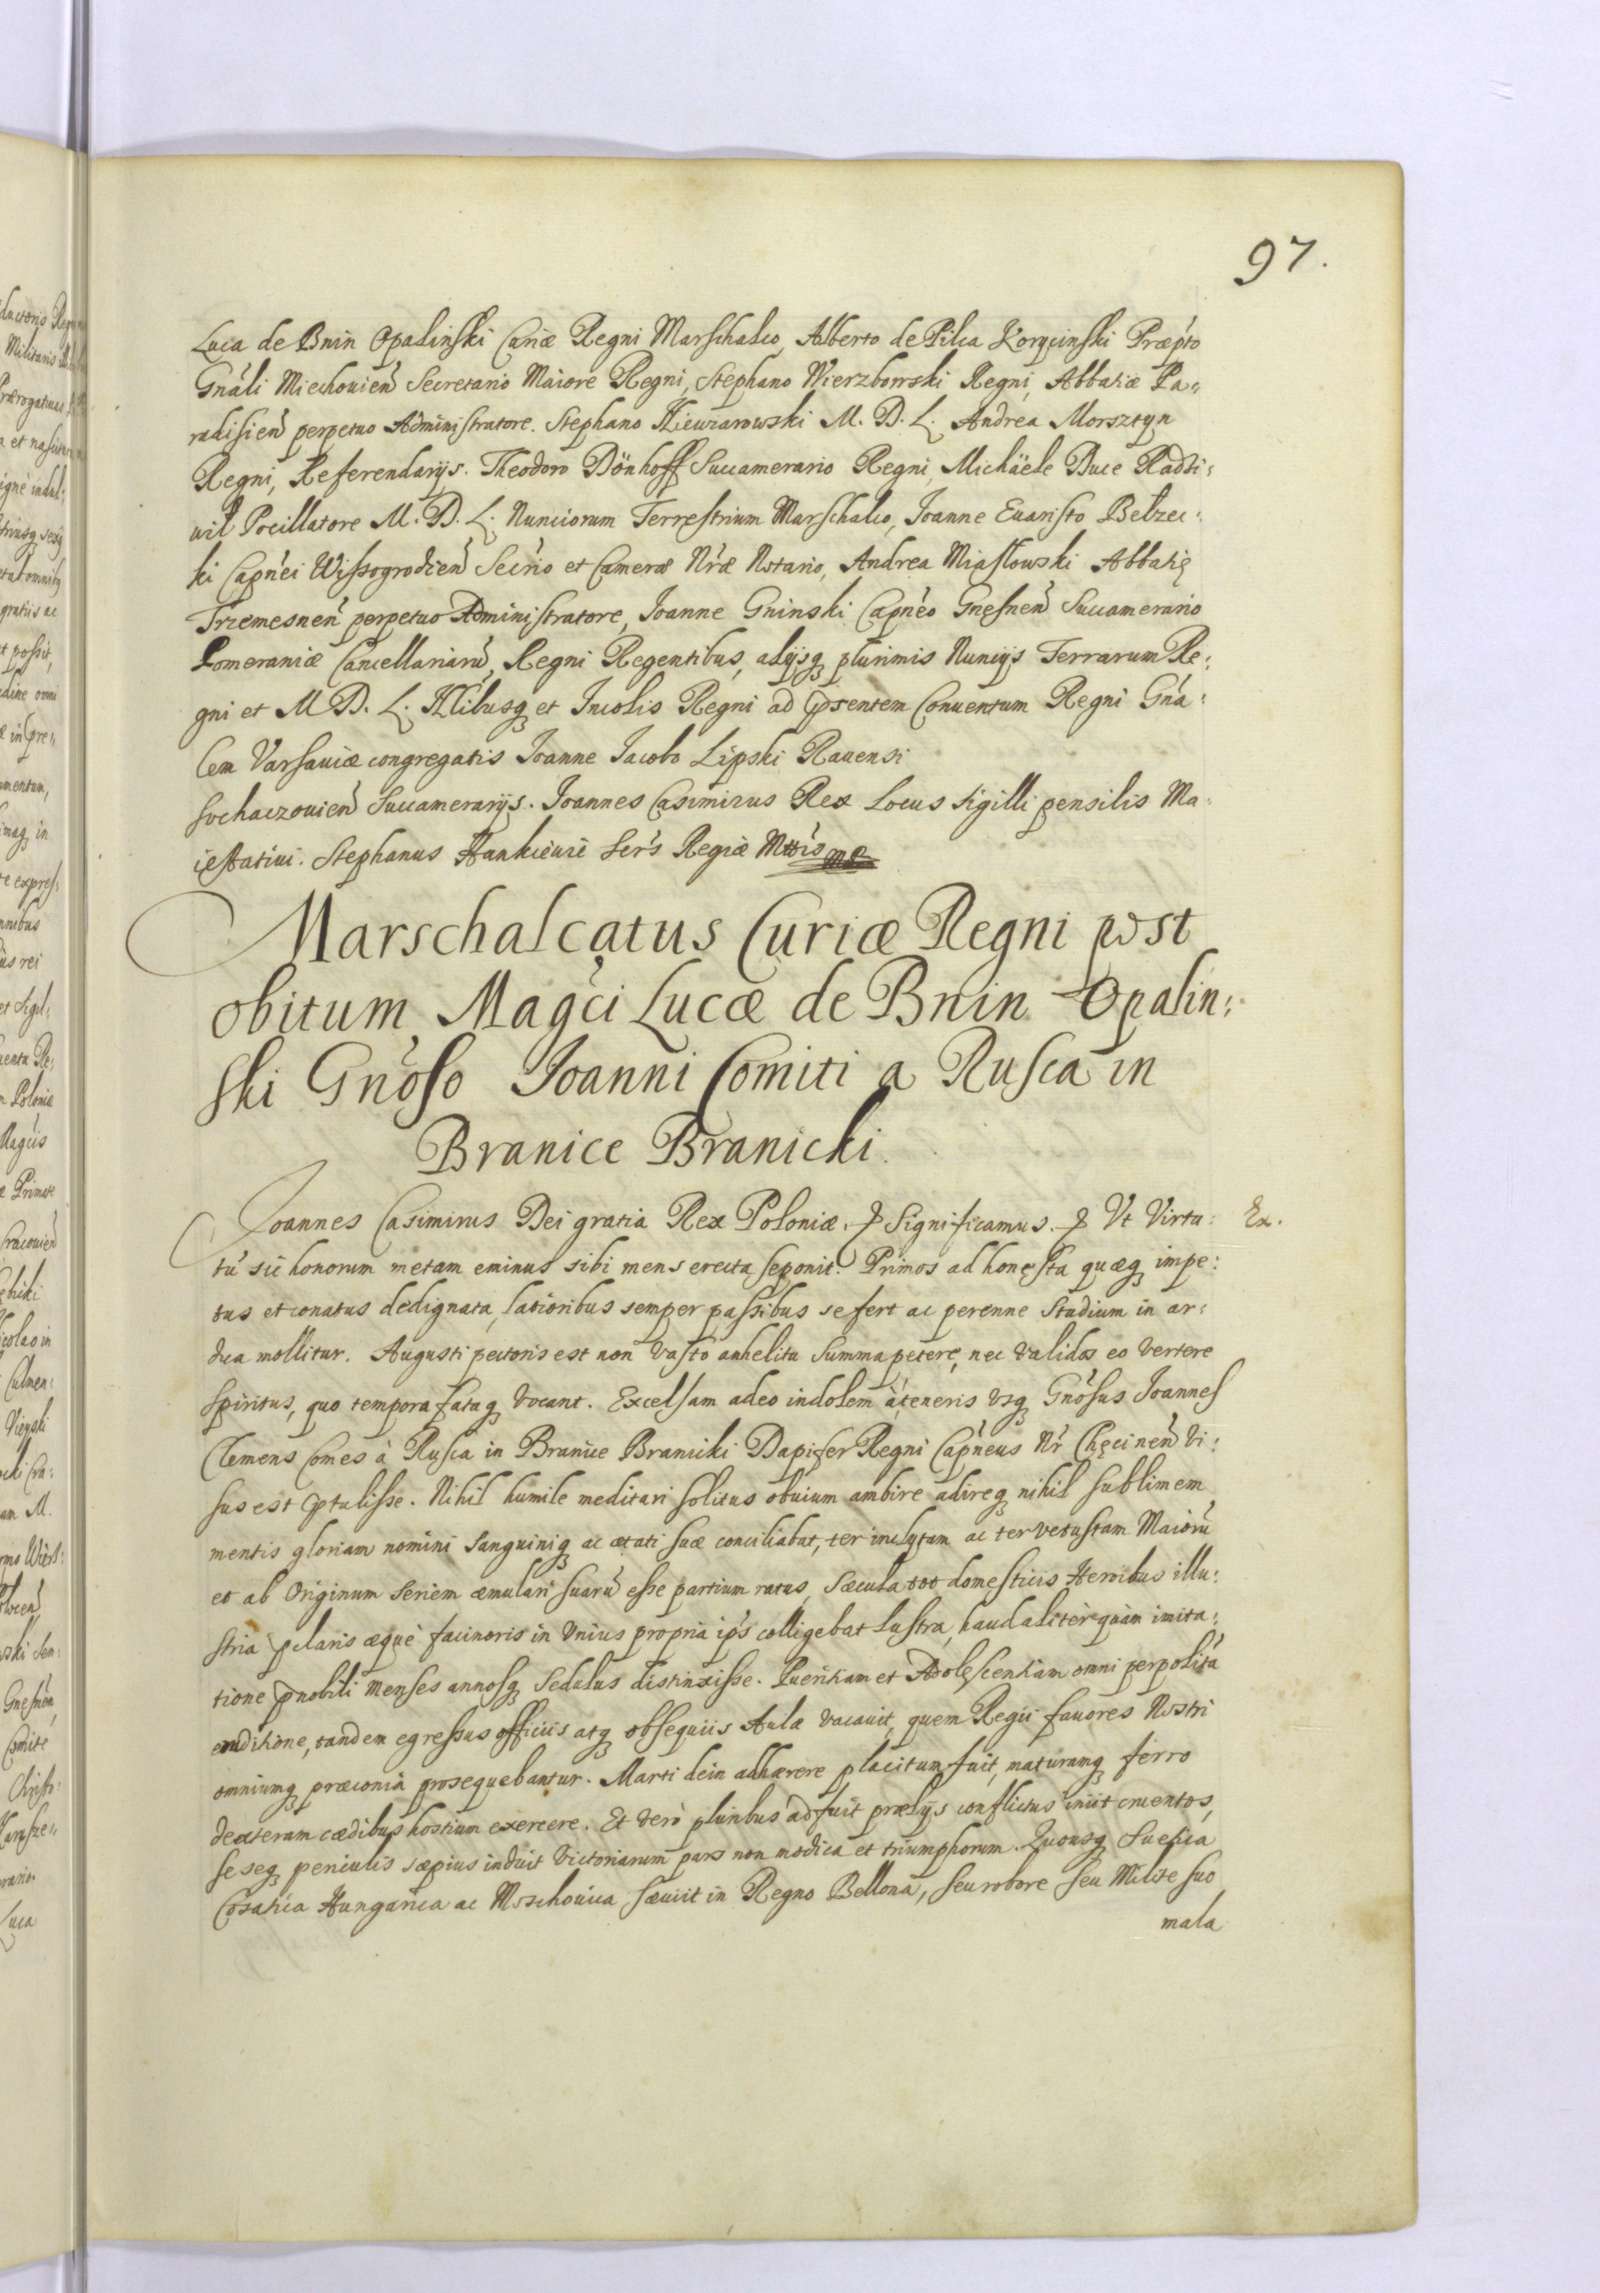 97.
Luca de Bnin Opalinski Curiæ Regni Marschalco, Alberto de Pilca Korycinski Præpto
Gnãli Miechouien̄ Secretario Maiore Regni, Stephano Wierzbowski Regni, Abbatiæ Pa-
radisien̄ perpetuo Administratore. Stephano M. D. L. Andrea Morsztyn
Regni, Referendarijs. Theodoro Dönhoff Succamerario Regni, Michäele Duce Radzi-
wil Pocillatore M. D. L. Nunciorum Terrestrium Marschalco, Joanne Euaristo Belzec-
ki Capn̄ei Wissogrodien̄ Secr̄io et Cameræ Nr̄æ Notario, Andrea Miaskowski Abbatię
Trzemesnen̄ perpetuo Administratore, Joanne Gninski Capn̄eo Gnesnen̄ Succamerario
Pomeraniæ Cancellariarū, Regni Regentibus, alijsq plurimis Nuncijs Terrarum Re-
gni et M D. L. Nłibusq et Incolis Regni ad pr̄sentem Conuentum Regni Gnā-
lem Varsauiæ congregatis Joanne Jacobo Lipski Rauensi
Sochaczouien̄ Succamerarijs. Joannes Casimirus Rex Locus sigilli pensilis Ma-
iestatiui. Stephanus Hankieuic Ser̄s Regiæ Mttis mp
Marschalcatus Curiæ Regni post
obitum Magc̄i Lucæ de Bnin Opalin-
ski Gnōso Joanni Comiti a Rusca in
Branice Branicki.
Joannes Casimirus Dei gratia Rex Poloniæ. & Significamus. & Vt Virtu-
Ex.
tū sic honorum metam eminus sibi mens erecta seponit. Primos ad honesta quæq impe-
tus et conatus dedignata, latioribus semper passibus se fert ac perenne Studium in ar-
dua mollitur. Augusti pectoris est non Vasto anhelitu Summa petere, nec Validos eo Vertere
Spiritus, quo tempora fataq Vocant. Excelsam adeo indolem à teneris Vsq Gnōsus Joannes
Clemens Comes à Rusca in Branice Branicki Dapifer Regni Capn̄eus Nr̄ Chęcinen̄ Vi-
sus est pr̄tulisse. Nihil humile meditari solitus obuium ambire adireq nihil sublimem
mentis gloriam nomini sanguiniq ac ætati suæ conciliabat, ter inclytam ac ter Vetustam Maiorū
et ab Originum Seriem æmulari suarū esse partium ratus, Sæcula tot domesticis Heroibus illu-
stria pclaris æquè facinoris in Vnius propria ips̄ colligebat Lustra, haud aliter quàm imita-
tione pnobili Menses annosq Sedulus distinxisse. Pueritiam et Adolescentiam omni perpolitā
eruditione, tandem egressus officiis atq obsequiis Aulæ Vacauit, quem Regii fauores Nostri
omniumq præconia prosequebantur. Marti dein adhærere placitum fuit, maturamq ferro
dexteram cædibus hostium exercere. Et Verò pluribus adfuit prælijs conflictus iniit cruentos,
seseq periculis sæpius induit Victoriarum pars non modica et triumphorum. Quousq Suetica
Cosatica Hungarica ac Moschouica Sæuiit in Regno Bellona, seu robore seu Milite suo
mala